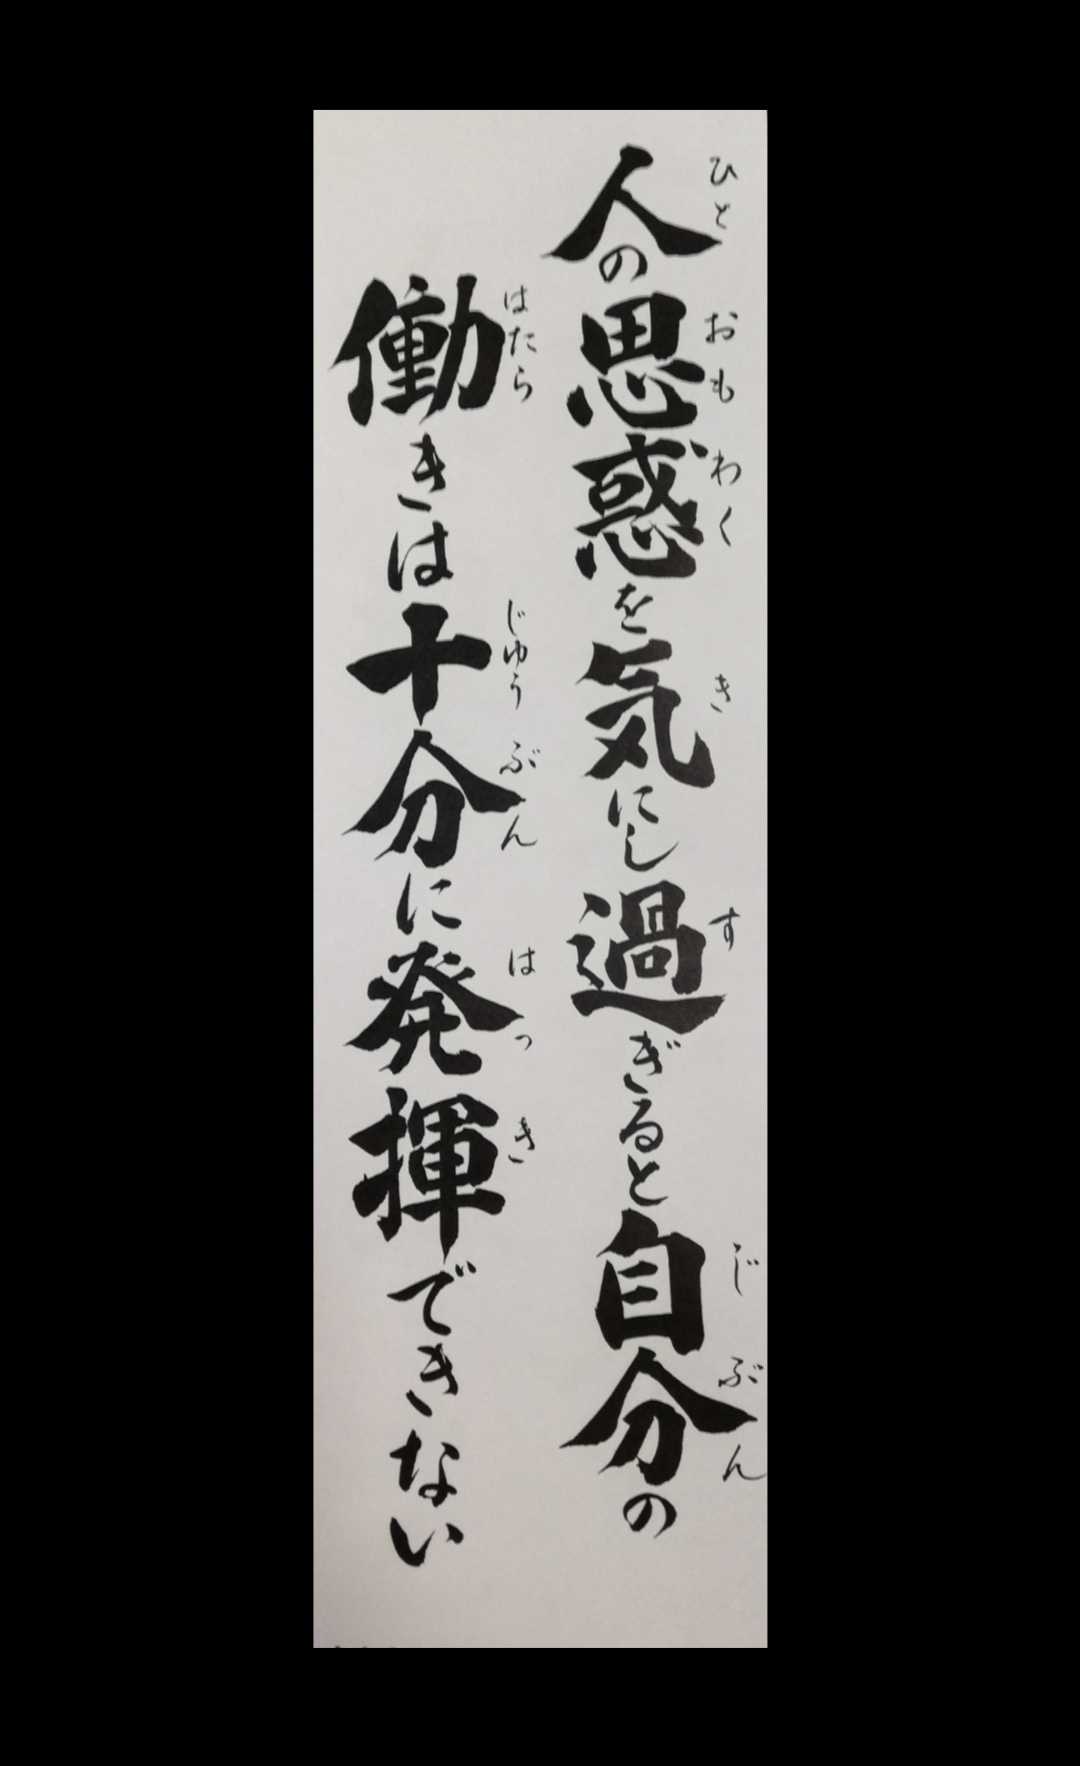 人の思惑を気にし過ぎると自分の
ひと おもわく き す じぶん
働きは十分に発揮できない
はたら じゅうぶん はっき